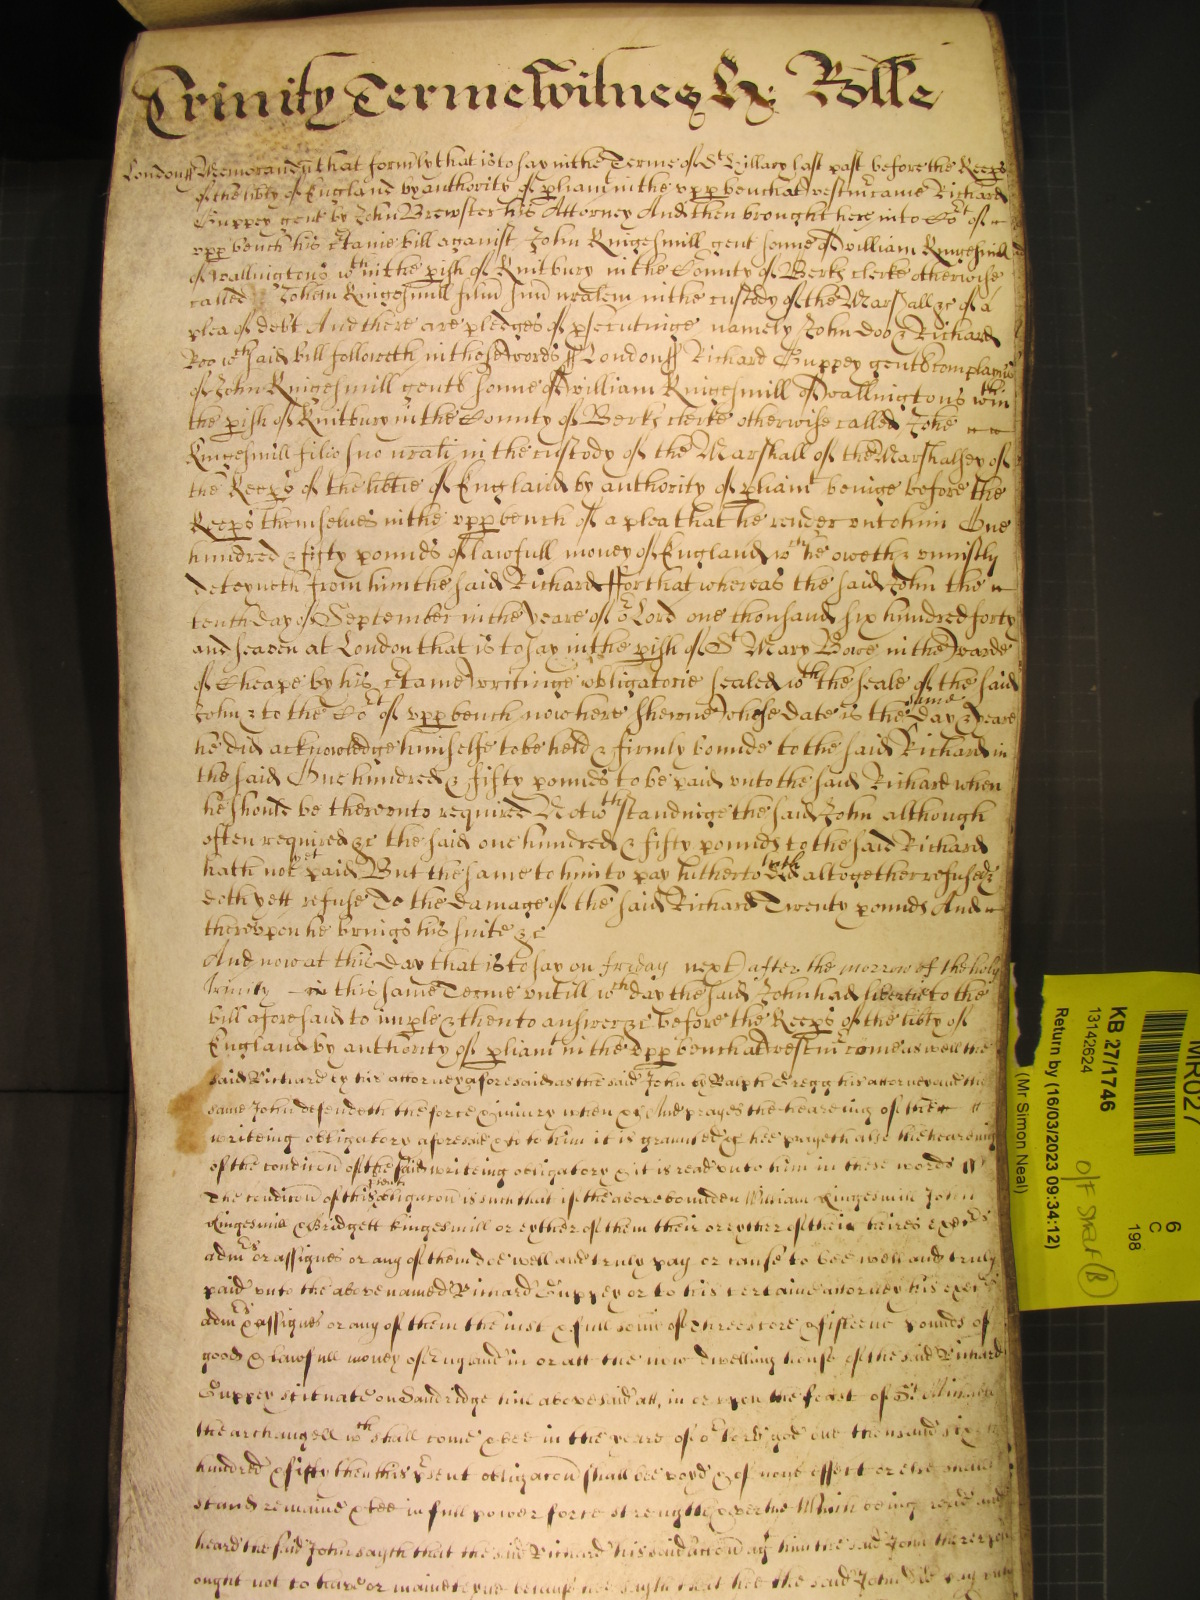 Trinity Terme Witnes &c: Rolle
London ss Memorand that formly that is to say in the Terme of St Hillary last past before the Keeps
of the libty of England by authority of pliamt in the vpp bench at Westm came Richard
Guppey gent by John Brewster his Attorney And then brought here into Cot of
vpp bench his ctaine bill against John Kingesmill gent sonne of William Kingesmill
of Wallingtons wth in the pish of Kintbury in the County of Berks clerke otherwise
called Johem Kingesmill filiu suu nralem in the custody of the Marshall &c of a
plea of debt And there are pledges of psecutinge namely John Doo & Richard
Roo wch said bill followeth in these words ss London ss Richard Guppey gent complaines
of John Kingesmill gent sonne of William Kingesmill of Wallingtons wthin
the pish of Kintbury in the County of Berks clerke otherwise called Johe
Kingesmill filio suo nrali in the custody of the Marshall of the Marshalsey of
the Keeps of the libtie of England by authority of pliamt beinge before the
Keeps themselves in the vpp bench of a plea that he render vnto him One
hundred & fifty pounds of lawfull money of England wch he oweth & vniustly
deteyneth from him the said Richard ffor that whereas the said John the
tenth day of September in the yeare of or Lord one thousand six hundred forty
and seaven at London that is to say in the pish of St Mary Bowe in the warde
of Cheape by his ctaine writinge obligatorie sealed wth the seale of the said
John & to the Cot of vpp bench now here shewne whose date is the same day & yeare
he did acknowledge himselfe to be held & firmly bounde to the said Richard in
the said One hundred & fifty pounds to be paid vnto the said Richard when
he should be therevnto required Notwthstandinge the said John although
often required &c the said one hundred & fifty pounds to the said Richard
hath not yet paid But the same to him to pay hitherto hath altogether refused &
doth yett refuse To the damage of the said Richard Twenty pounds And
therevpon he brings his suite &c
And now at this day that is to say on friday next after the morrow of the holy
Trinity in this same Terme vntill wch day the said John had libertie to the
bill aforesaid to imple & then to answer &c before the Keeps of the libty of
England by authority of pliamt in the vpp bench at Westm come as well the
said Richard by his attorney aforesaid as the said John by Ralph Gregg his attorney and the
same John defendeth the force & iniury when &c And prayes the heareing of the
writeing obligatory aforesaid & to him it is graunted &c hee prayeth also the heareing
of the condicon of the said writeing obligatory & it is read vnto him in these words ss
The condicon of this psent obligacon is such that if the above bounden William Kingesmill John
Kingesmill & Bridgett Kingesmill or eyther of them their or eyther of their heires execrs
admrs or assignes or any of them doe well and truly pay or cause to bee well and truly
paid vnto the above named Richard Guppey or to his certaine attorney his execrs
admrs & assignes or any of them the iust & full some of threescore & fifteene pounds of
good & lawfull money of England in or att the now dwelling house of the said Richard
Guppey scituate on Sandridge hill abovesaid att, in or vpon the feast of St Michaell
the archangell wch shall come & bee in the yeare of or lord god one thousand six
hundred & fifty then this psent obligacon shall bee voyd & of none effect or else
stand remaine & bee in full power force strength & vertue Which being read and
heard the said John sayth that the said Richard his said accon agt him the said John therevpon
ought not to have or mainteyne because hee sayth that hee the said John did pay vnto
MR027
KB 27/1746
13142624
6
C
198
O/F Shelf (B)
Return by (16/03/2023 09:34:12)
(Mr Simon Neal)